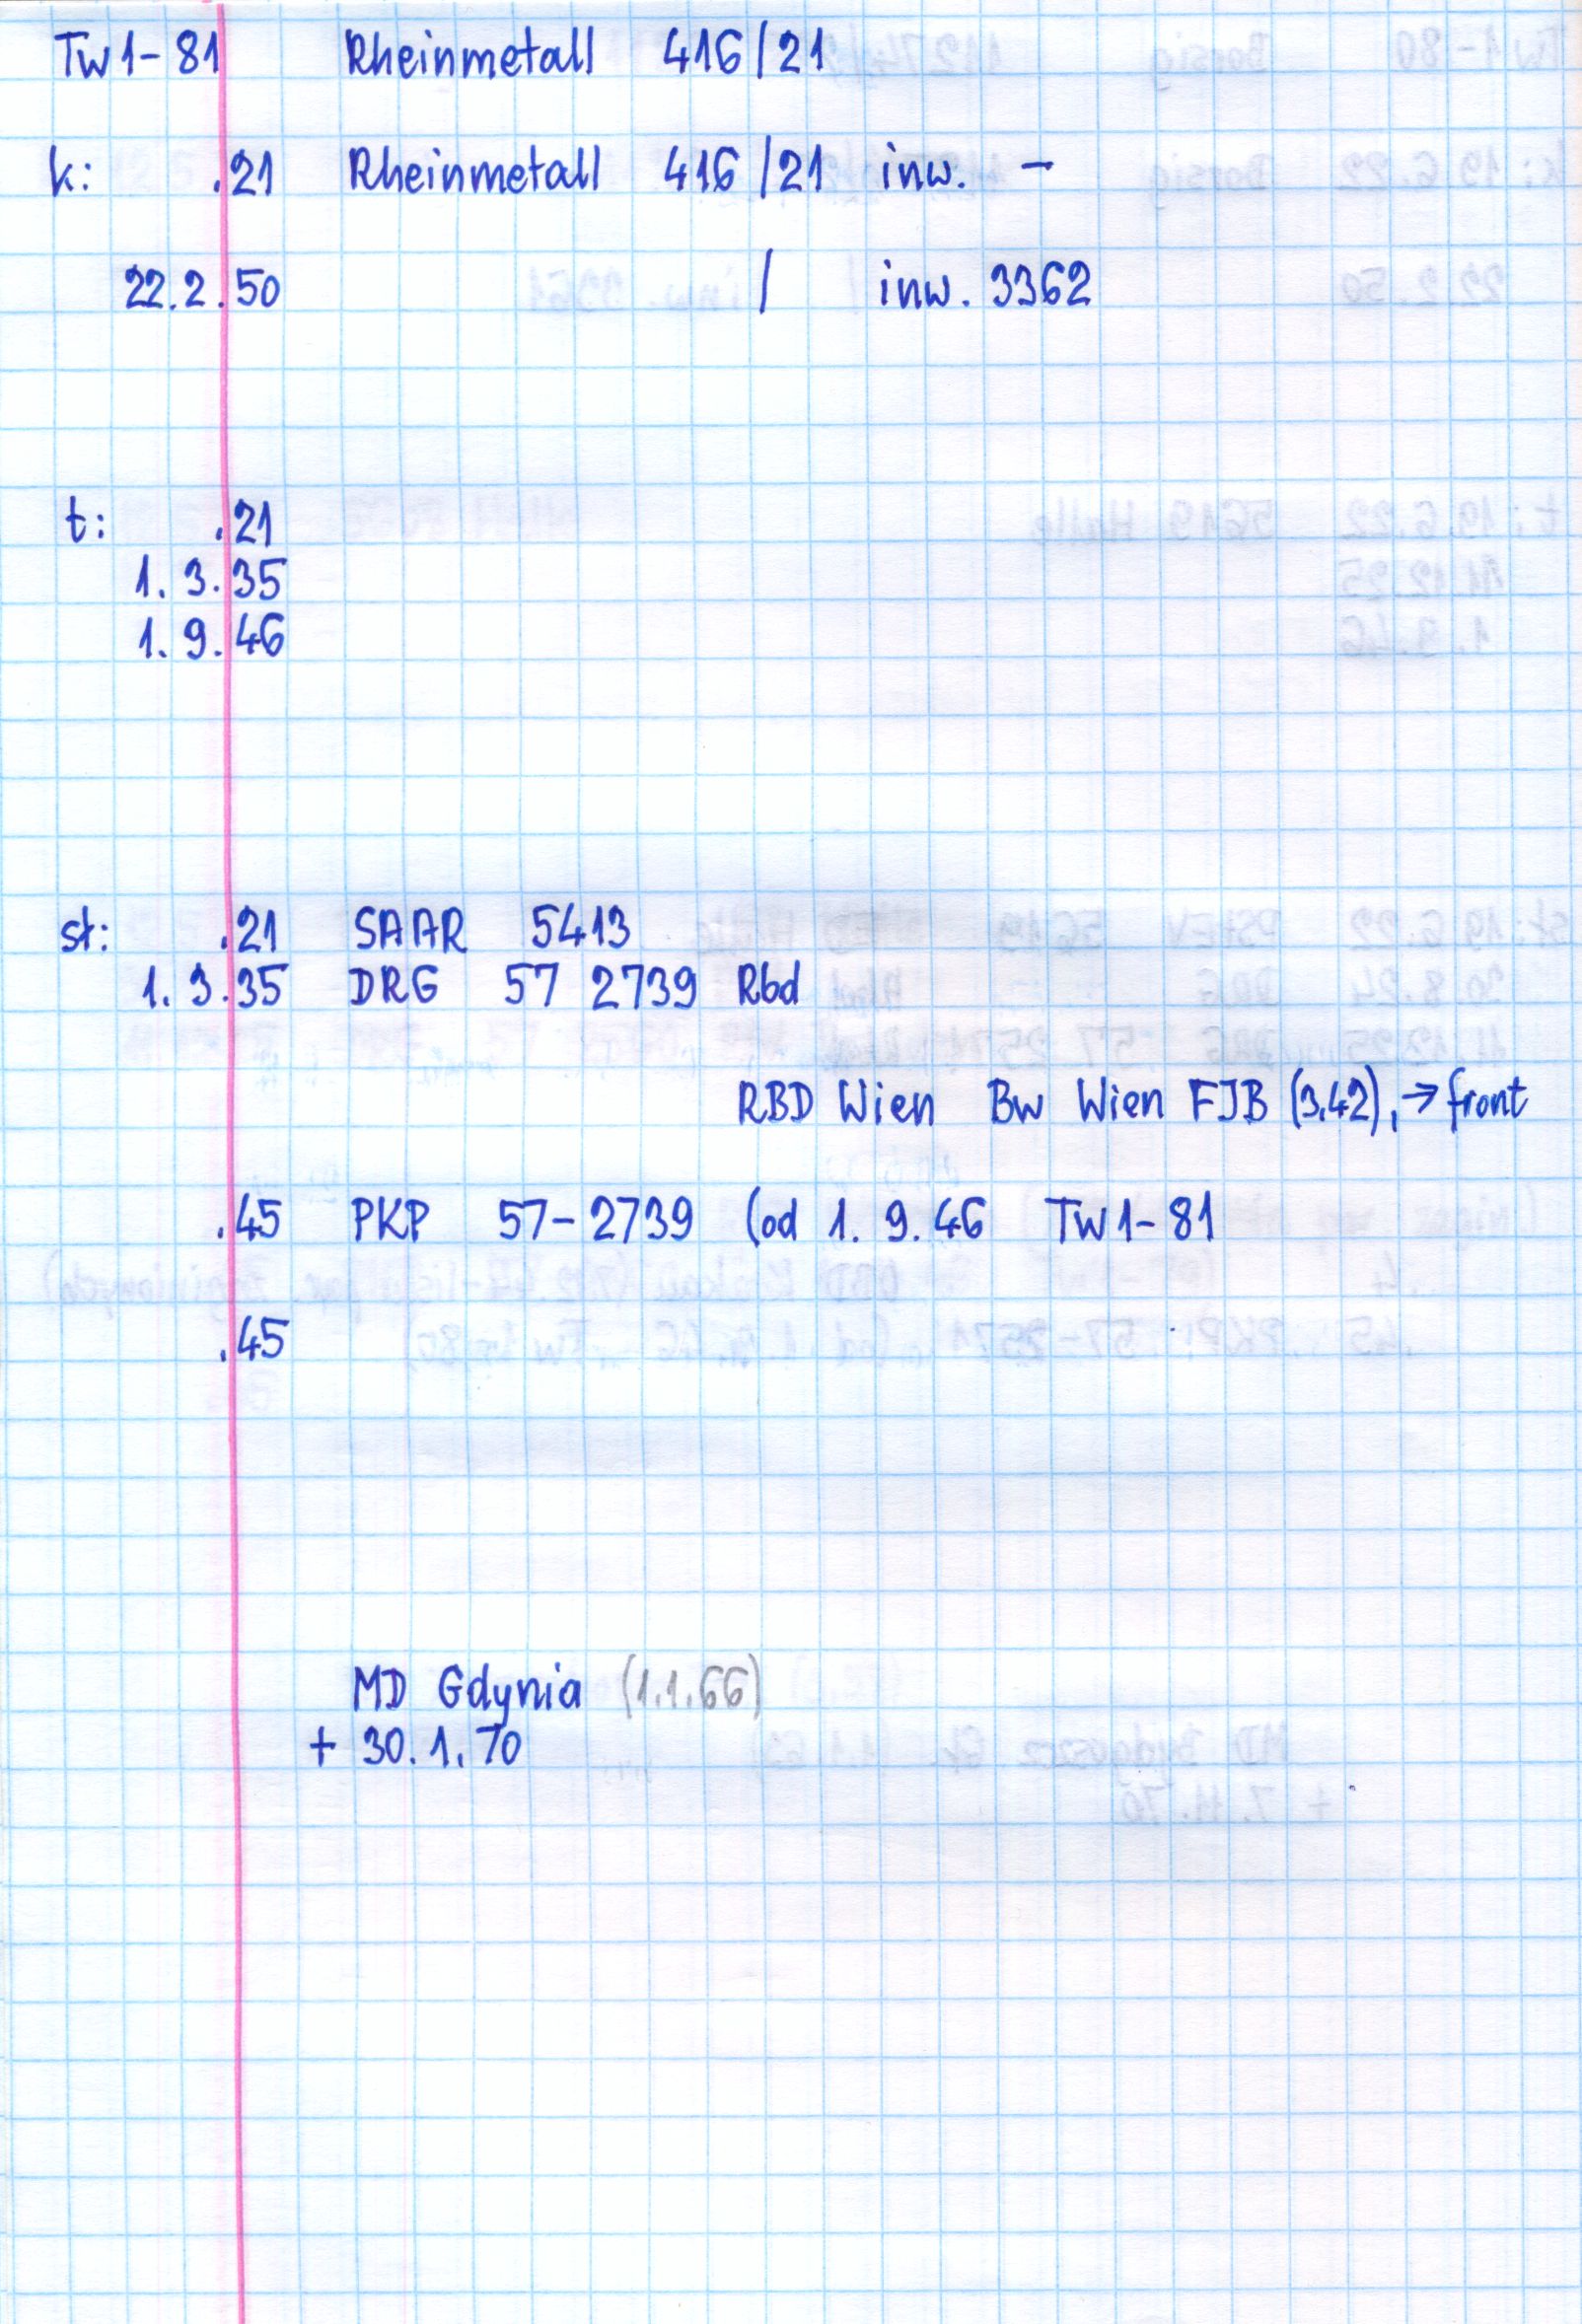 Tw1-81 Rheinmetall 416/21
k: .21 Rheinmetall 416/21 inw. -
22.2.50 / inw. 3362
t: .21
1.3.35
1.9.46
st: .21 SAAR 5413
1.3.35 DRG 57 2739 Rbd
RBD Wien Bw Wien FJB (3.42), → front
.45 PKP 57-2739 (od 1.9.46 Tw1-81
.45
MD Gdynia (1.1.66)
+ 30.1.70